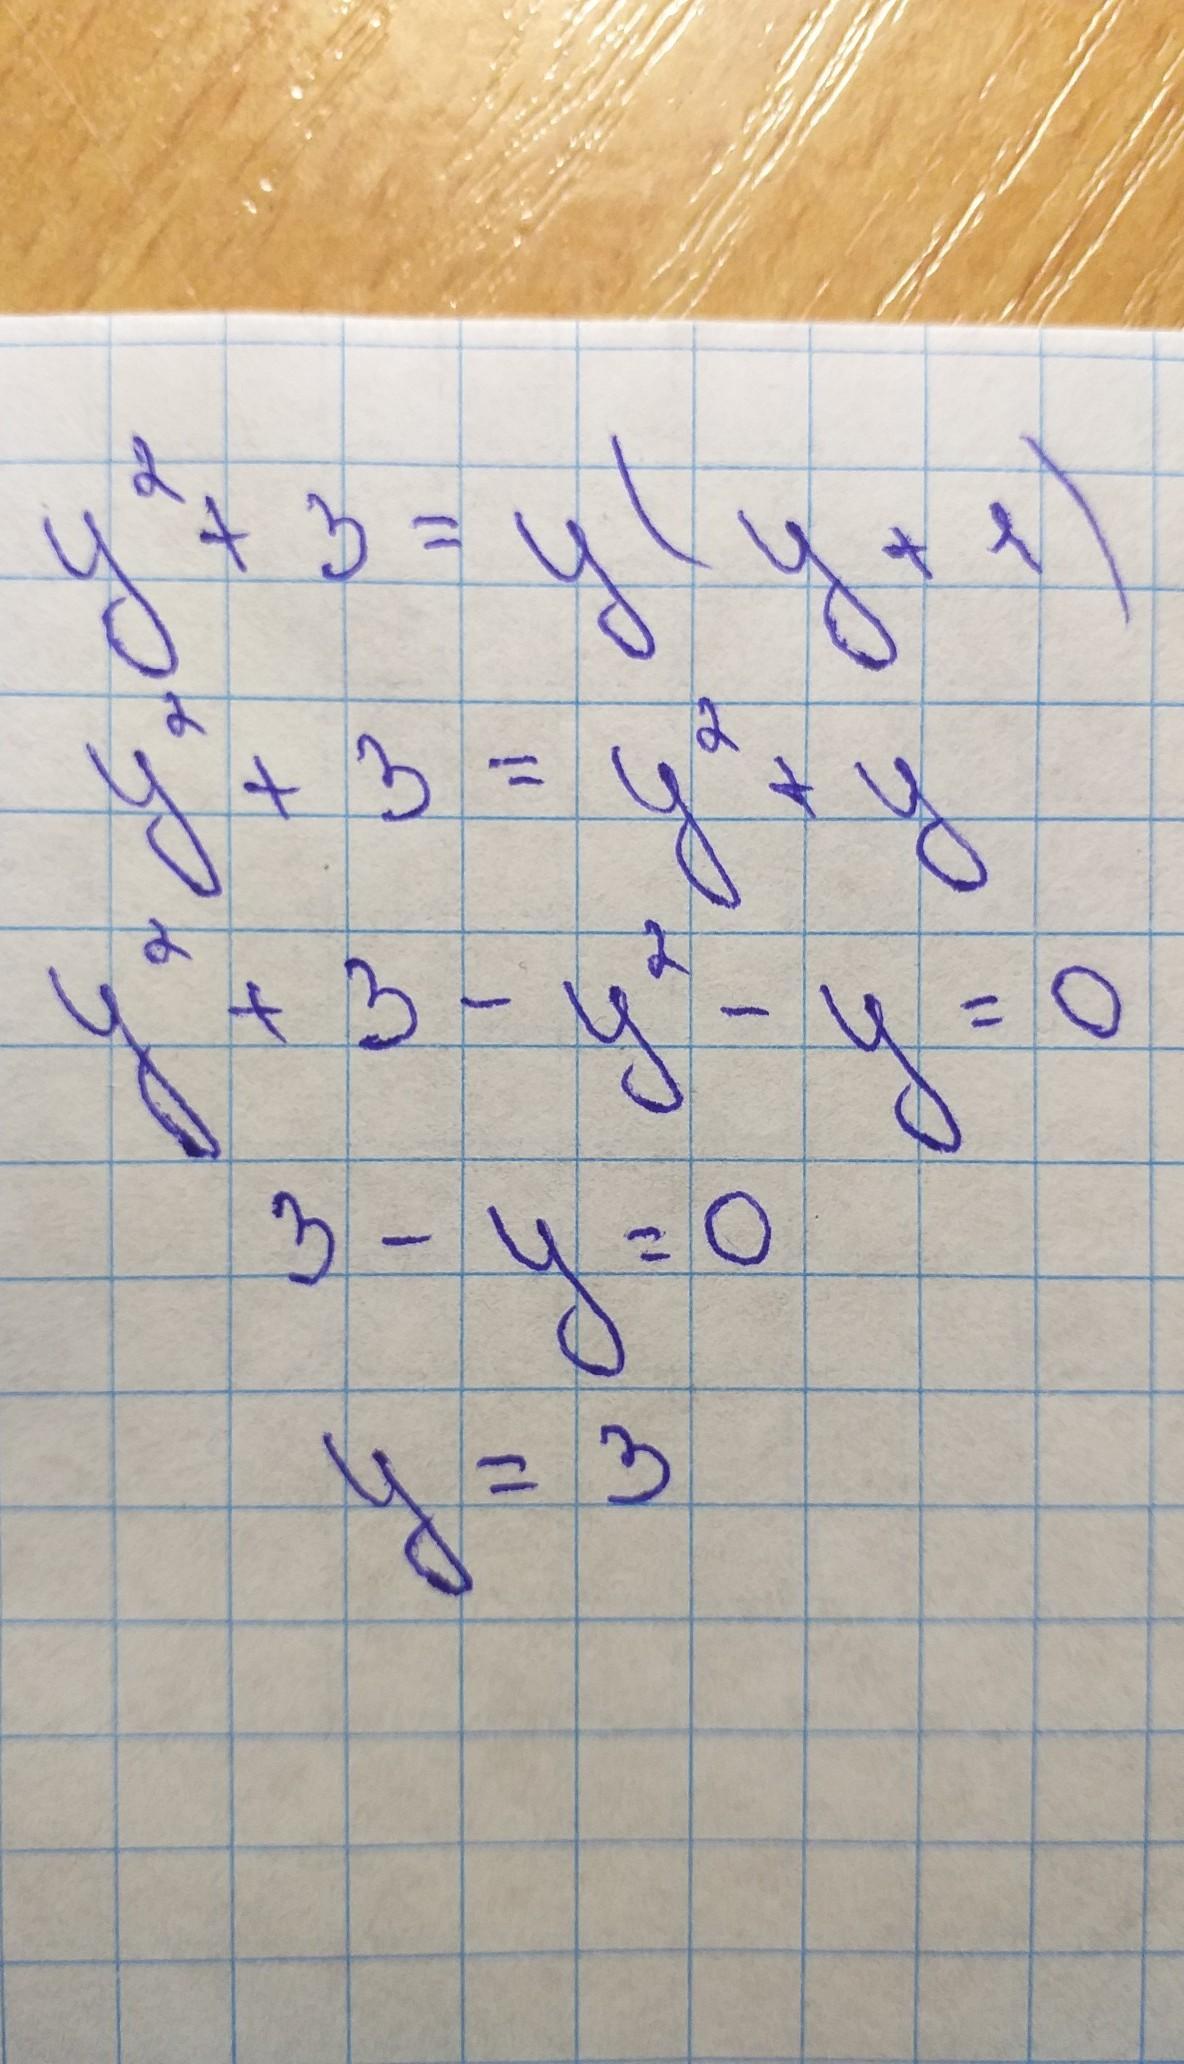 y² + 3 = y(y + 1)
y² + 3 = y² + y
y² + 3 - y² - y = 0
3 - y = 0
y = 3